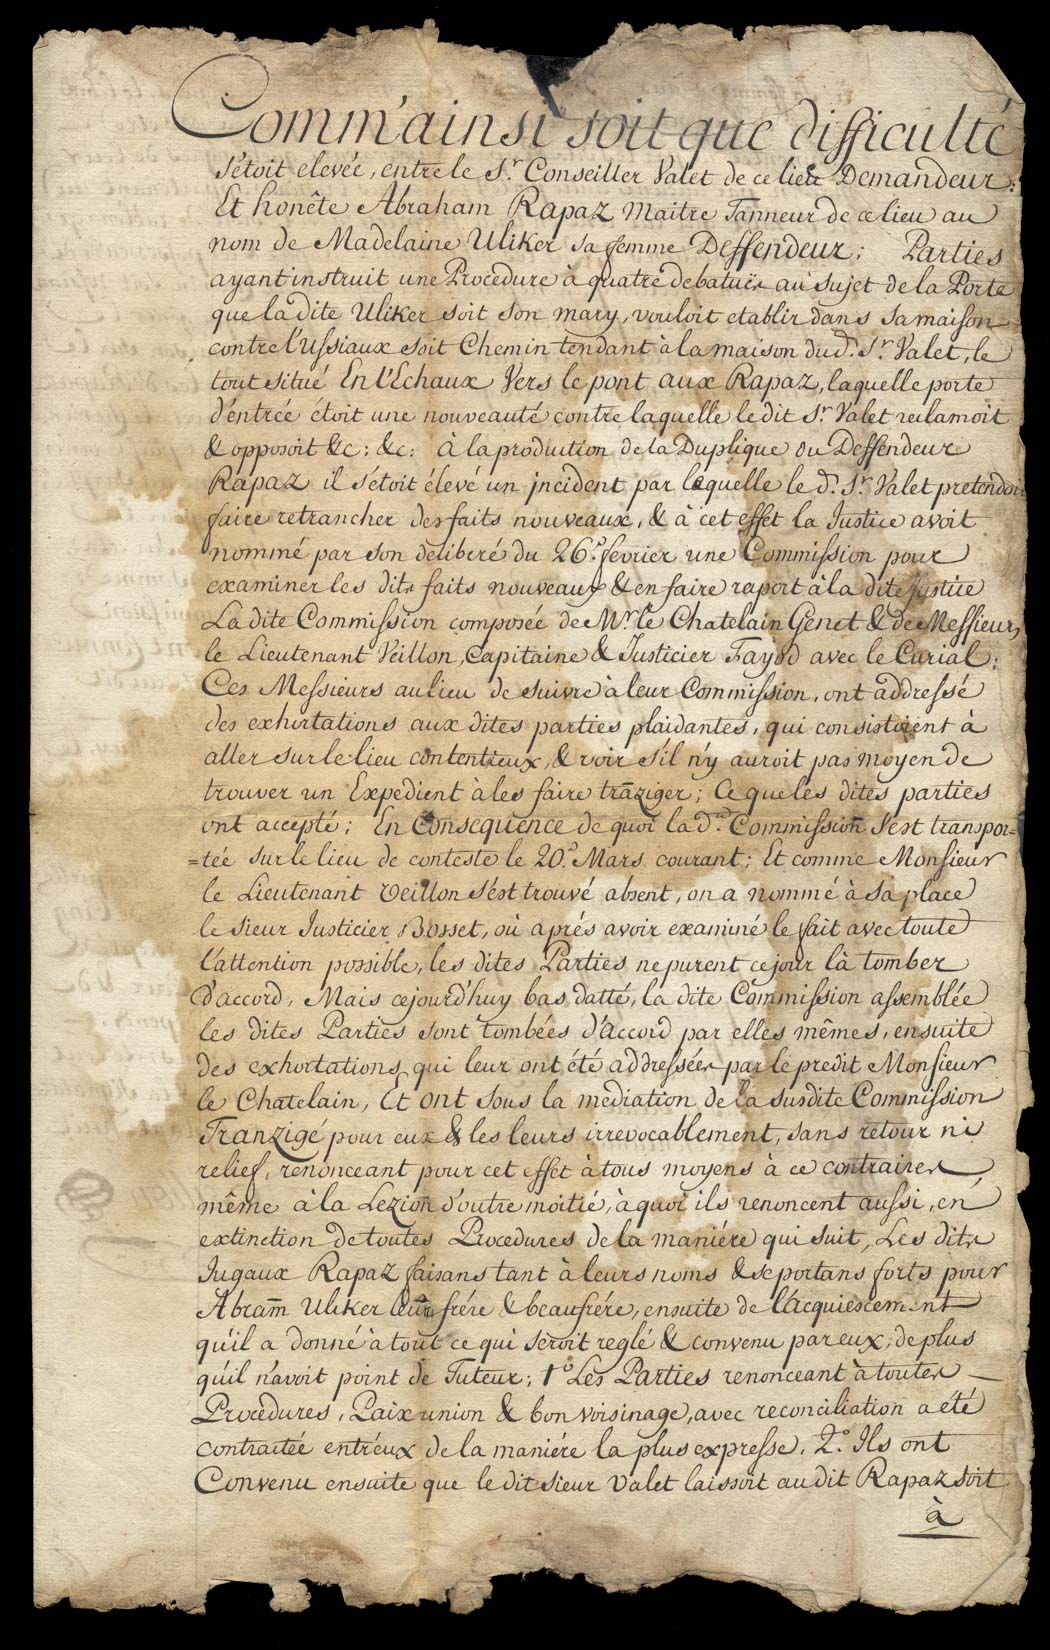 Comm'ainsi soit que difficulté
s'étoit elevée, entre le Sr. Conseiller Valet de ce lieu Demandeur:
Et honête Abraham Rapaz Maitre Tanneur de ce lieu au
nom de Madelaine Uliker sa femme Deffendeur; Parties
ayant instruit une Procedure à quatre debatües au sujet de la Porte
que la dite Uliker soit son mary, vouloit etablir dans sa maison
contre l'Ussiaux soit Chemin tendant à la maison dud. Sr. Valet, le
tout situé En l'Echaux Vers le pont aux Rapaz, laquelle porte
d'entrée étoit une nouveauté contre laquelle le dit Sr. Valet reclamoit
& opposoit &c: &c: à la production de la Duplique du Deffendeur
Rapaz il s'étoit élevé un jncident par lequelle le d. Sr. Valet pretendoit
faire retrancher des faits nouveaux, & à cet effet la Justice avoit
nommé par son déliberé du 26e. fevrier une Commission pour
examiner les dits faits nouveaux & en faire raport à la dite Justice
La dite Commission composée de Mr. le Chatelain Genet & de Messieurs
le Lieutenant Veillon, Capitaine & Justicier Fayod avec le Curial;
Ces Messieurs au lieu de suivre à leur Commission, ont addressé
des exhortations aux dites parties plaidantes, qui consistoient à
aller sur le lieu contentieux, & voir s'il n'y auroit pas moyen de
trouver un Expedient à les faire trãziger; Ce que les dites parties
ont accepté; En Consequence de quoi la d.te Commission s'est transpor=
=tée sur le lieu de conteste le 20e. Mars courant; Et comme Monsieur
le Lieutenant Veillon s'est trouvé absent, on a nommé à sa place
le Sieur Justicier Bosset, où aprés avoir examiné le fait avec toute
l'attention possible, les dites Parties ne purent ce jour là tomber
d'accord, Mais cejourd'huy bas datté, la dite Commission assemblée
les dites Parties sont tombées d'accord par elles mêmes, ensuite
des exhortations qui leur ont été addressées par le predit Monsieur
le Chatelain, Et ont sous la médiation de la susdite Commission
Tranzigé pour eux & les leurs irrevocablement, sans retour ni
relief, renonceant pour cet effet à tous moyens à ce contraires
même à la Lezion d'outre moitié, à quoi ils renoncent aussi, en
extinction de toutes Procedures de la maniére qui suit, Les dits
Jugaux Rapaz faisans tant à leurs noms & se portans forts pour
Abram̃ Uliker leur frére & beaufrére, ensuite de l'acquiescement
qu'il a donné à tout ce qui seroit reglé & convenu par eux, de plus
qu'il n'avoit point de Tuteur; 1o Les Parties renonceant à toutes
Procedures, Paix union & bon voisinage, avec reconciliation a été
contractée entr'eux de la maniére la plus expresse. 2o. Ils ont
Convenu ensuite que le dit sieur Valet laissoit au dit Rapaz soit
à